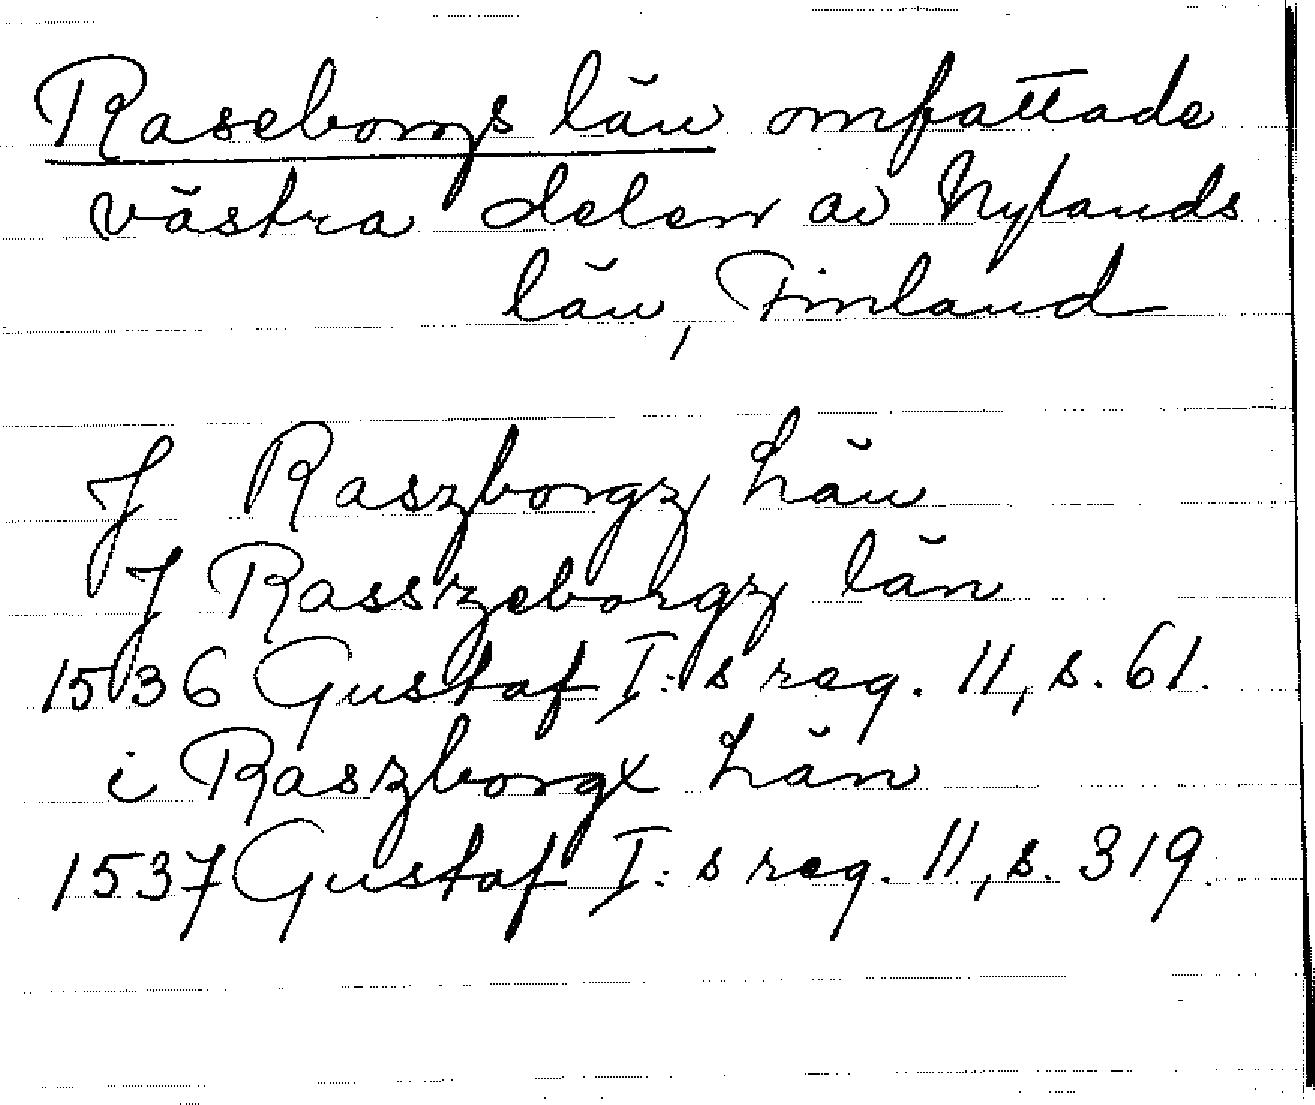 Raseborgs län omfattade
västra delen av Nylands
län, Finland
J Raszborgz Län
J Rasszeborgz län
1536 Gustaf I:s reg. 11, s. 61.
i Raszborgx Län
1537 Gustaf I:s reg. 11, s. 319.